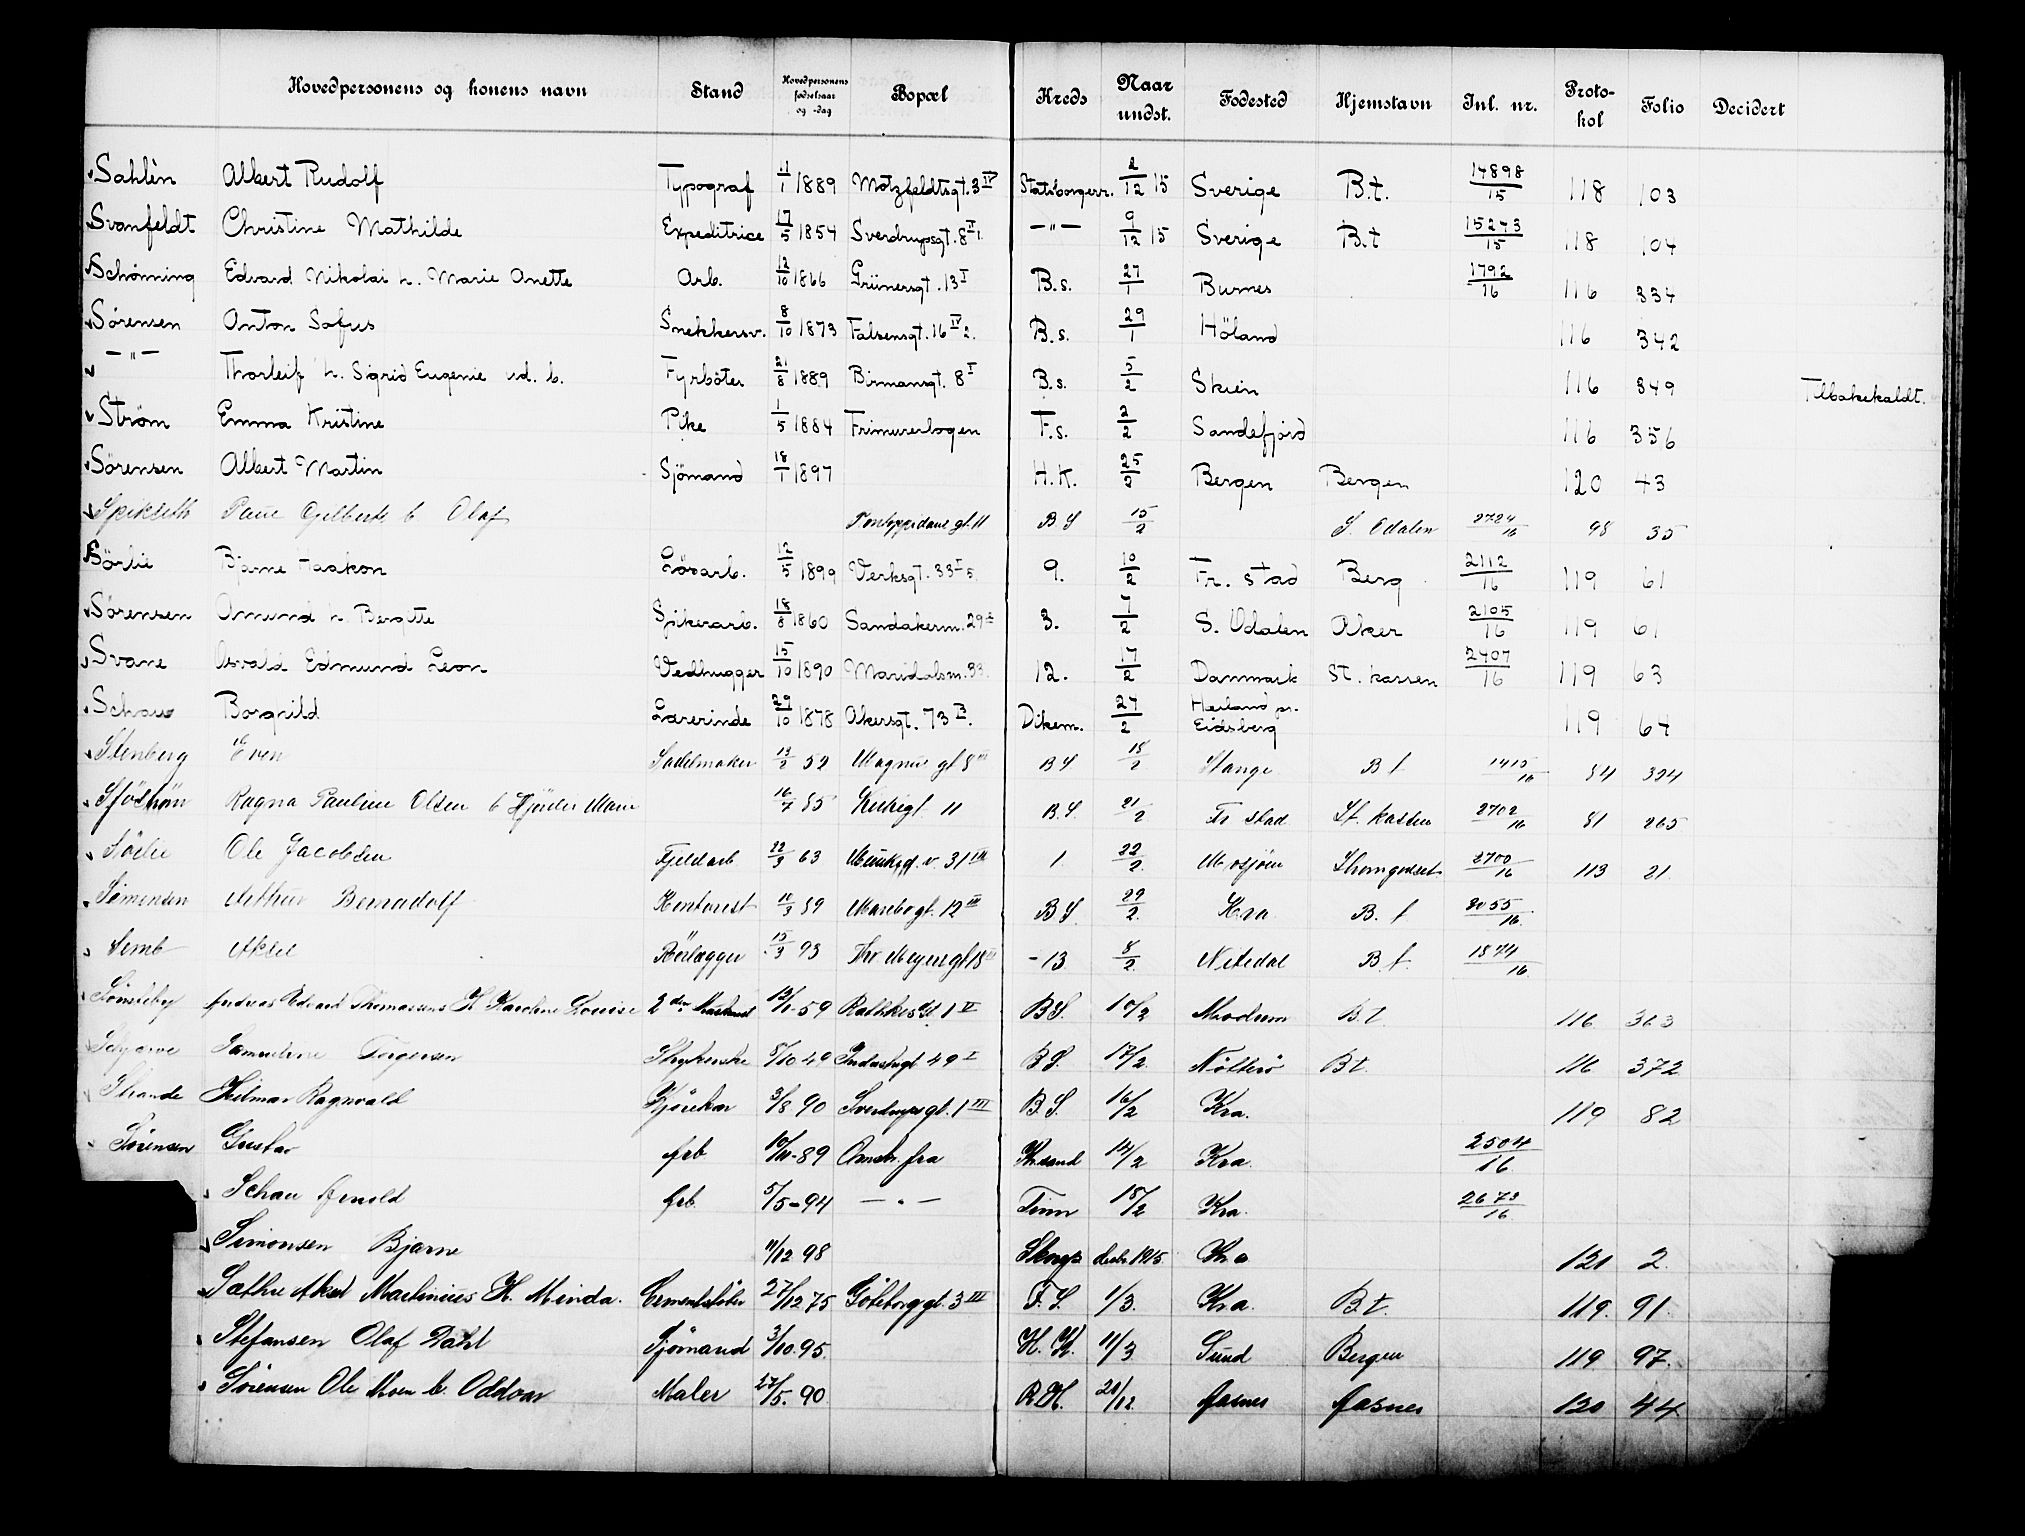 Hovedpersonens og konens navn Stand Hovedpersonens fødselsaar og -dag Bopæl Kreds Naar undst. Fødested Hjemstavn Inl. nr. Proto-kol Folio Decidert
Sahlèn Albert Rudolf Typograf 11/1 1889 Motzfeldtsgt. 3 IV Statsborgerr. 2/12 15 Sverige B.t. 14898/15 118 103
Svanfeldt Christine Mathilde Expeditrice 17/5 1854 Sverdrupsgt. 8 II 1. —"— 9/12 15 Sverige B.t 15243/15 118 104
Schønning Edvard Nikolai h. Marie Anette Arb. 12/10 1866 Grünersgt. 13 I B.s. 27/1 Burnes 1792/16 116 334
Sørensen Anton Sofus Snekkersv. 8/10 1873 Falsensgt. 16 IV 2. B.s. 29/1 Höland 116 342
—"— Thorleif h. Sigrid Eugenie ud. b. Fyrbøter 21/8 1889 Birmansgt. 8 I B.s. 5/2 Skien 116 349 Tilbakekaldt.
Strøm Emma Kristine Pike 1/5 1884 Frimurerlogen F.s. 2/2 Sandefjord 116 356
Sørensen Albert Martin Sjömand 18/1 1897 H.K. 25/2 Bergen Bergen 120 43
b Olaf gt. 11 B S 15/2 S. Odalen 2724/16 98 35
Sörlie Bjarne Haakon Lösarb. 12/5 1899 Verksgt. 33 I 5. 9. 10/2 Fr. stad Berg 2112/16 119 61
Sørensen Amund h. Bergitte Spikerarb. 18/8 1860 Sandakerm. 29 3. 7/2 S. Odalen Aker 2105/16 119 61
Svane Osvald Edmund Leon Vedhugger 15/10 1890 Maridalsm. 33. 12. 17/2 Danmark St. kassen 2407/16 119 63
Schaus Borgvild Lærerinde 29/10 1878 Akersgt. 73 B. Dikem. 27/2 Eidsberg 119 64
Stenberg Even Sadelmaker 13/2 52 Magnus gt 8 III B S. 18/2 Stange B t 1415/16 84 324
Ragna Pauline Olsen b Marie 16/7 85 11 B.S. 21/2 Fr stad St. kassen 2702/16 81 265
Sörlie Ole Jacobsen Fjeldarb 22/3 63 v. 31 III 1 22/2. Mosjøen Stromgodset 2700/16 113 21
Simensen Arthur Bernadolf Kontorist 10/3 89 Maribogt. 12 III B S 29/2. Kra B. t 3055/16. 
Semb Aksel Rörlægger 15/3 93 Thv Meyersgt 18 II - 13. 8/2. Nitedal B t. 1874/16.
Sønsteby Andreas Edvard Thomassens H Karoline Louise 2den Maskinist 13/1-59 Rathkes Gt 1 IV B S. 10/2 Modum B.t. 116 363
Samueline Torgersen Strykerske 5/10 49 Industrigt 49 I B S. 17/2. Nøtterø B t. 116 372
Strande Hilmar Ragnvald Kjørekar 3/8 90 Sverdrupsgt. 1 III B S. 16/2 Kra. 119 82
Sörensen Gustav Arb 10/10-89 Omstr. fra Kr.sand 14/2 Kra. 2504/16.
Schau Arnold Arb. 5/5-94 — " — Tinn 18/2 Kra. 2673/16.
Simonsen Bjarne 11/12 98 desbr. 1915. Kra 121 2.
Sæthre Aksel Martinius H. Minda. Cementstøber 27/12 75 Göteborggt. 3 III F. S. 1/3. Kra. B.t. 119. 91.
Stefansen Olaf Dahl Sjömand 3/10. 95. H. K. 11/3 Sund Bergen 119 97.
Sörensen Ole Moen b. Oddvar Maler 27/5. 90 R.H. 21/12 Aasnes Aasnes 120 44